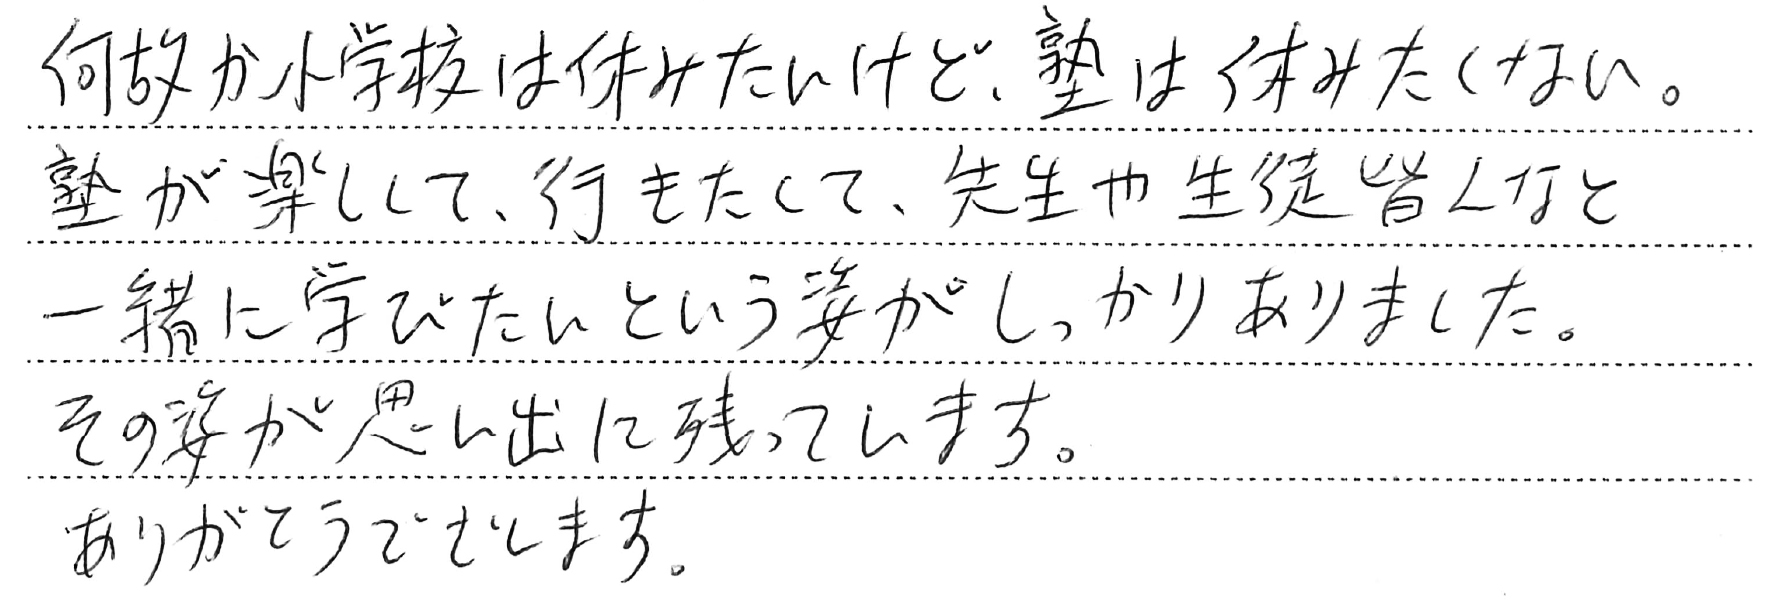 何故か小学校は休みたいけど、塾は休みたくない。
塾が楽しくて、行きたくて、先生や生徒皆んなと
一緒に学びたいという姿がしっかりありました。
その姿が思い出に残っています。
ありがとうございます。